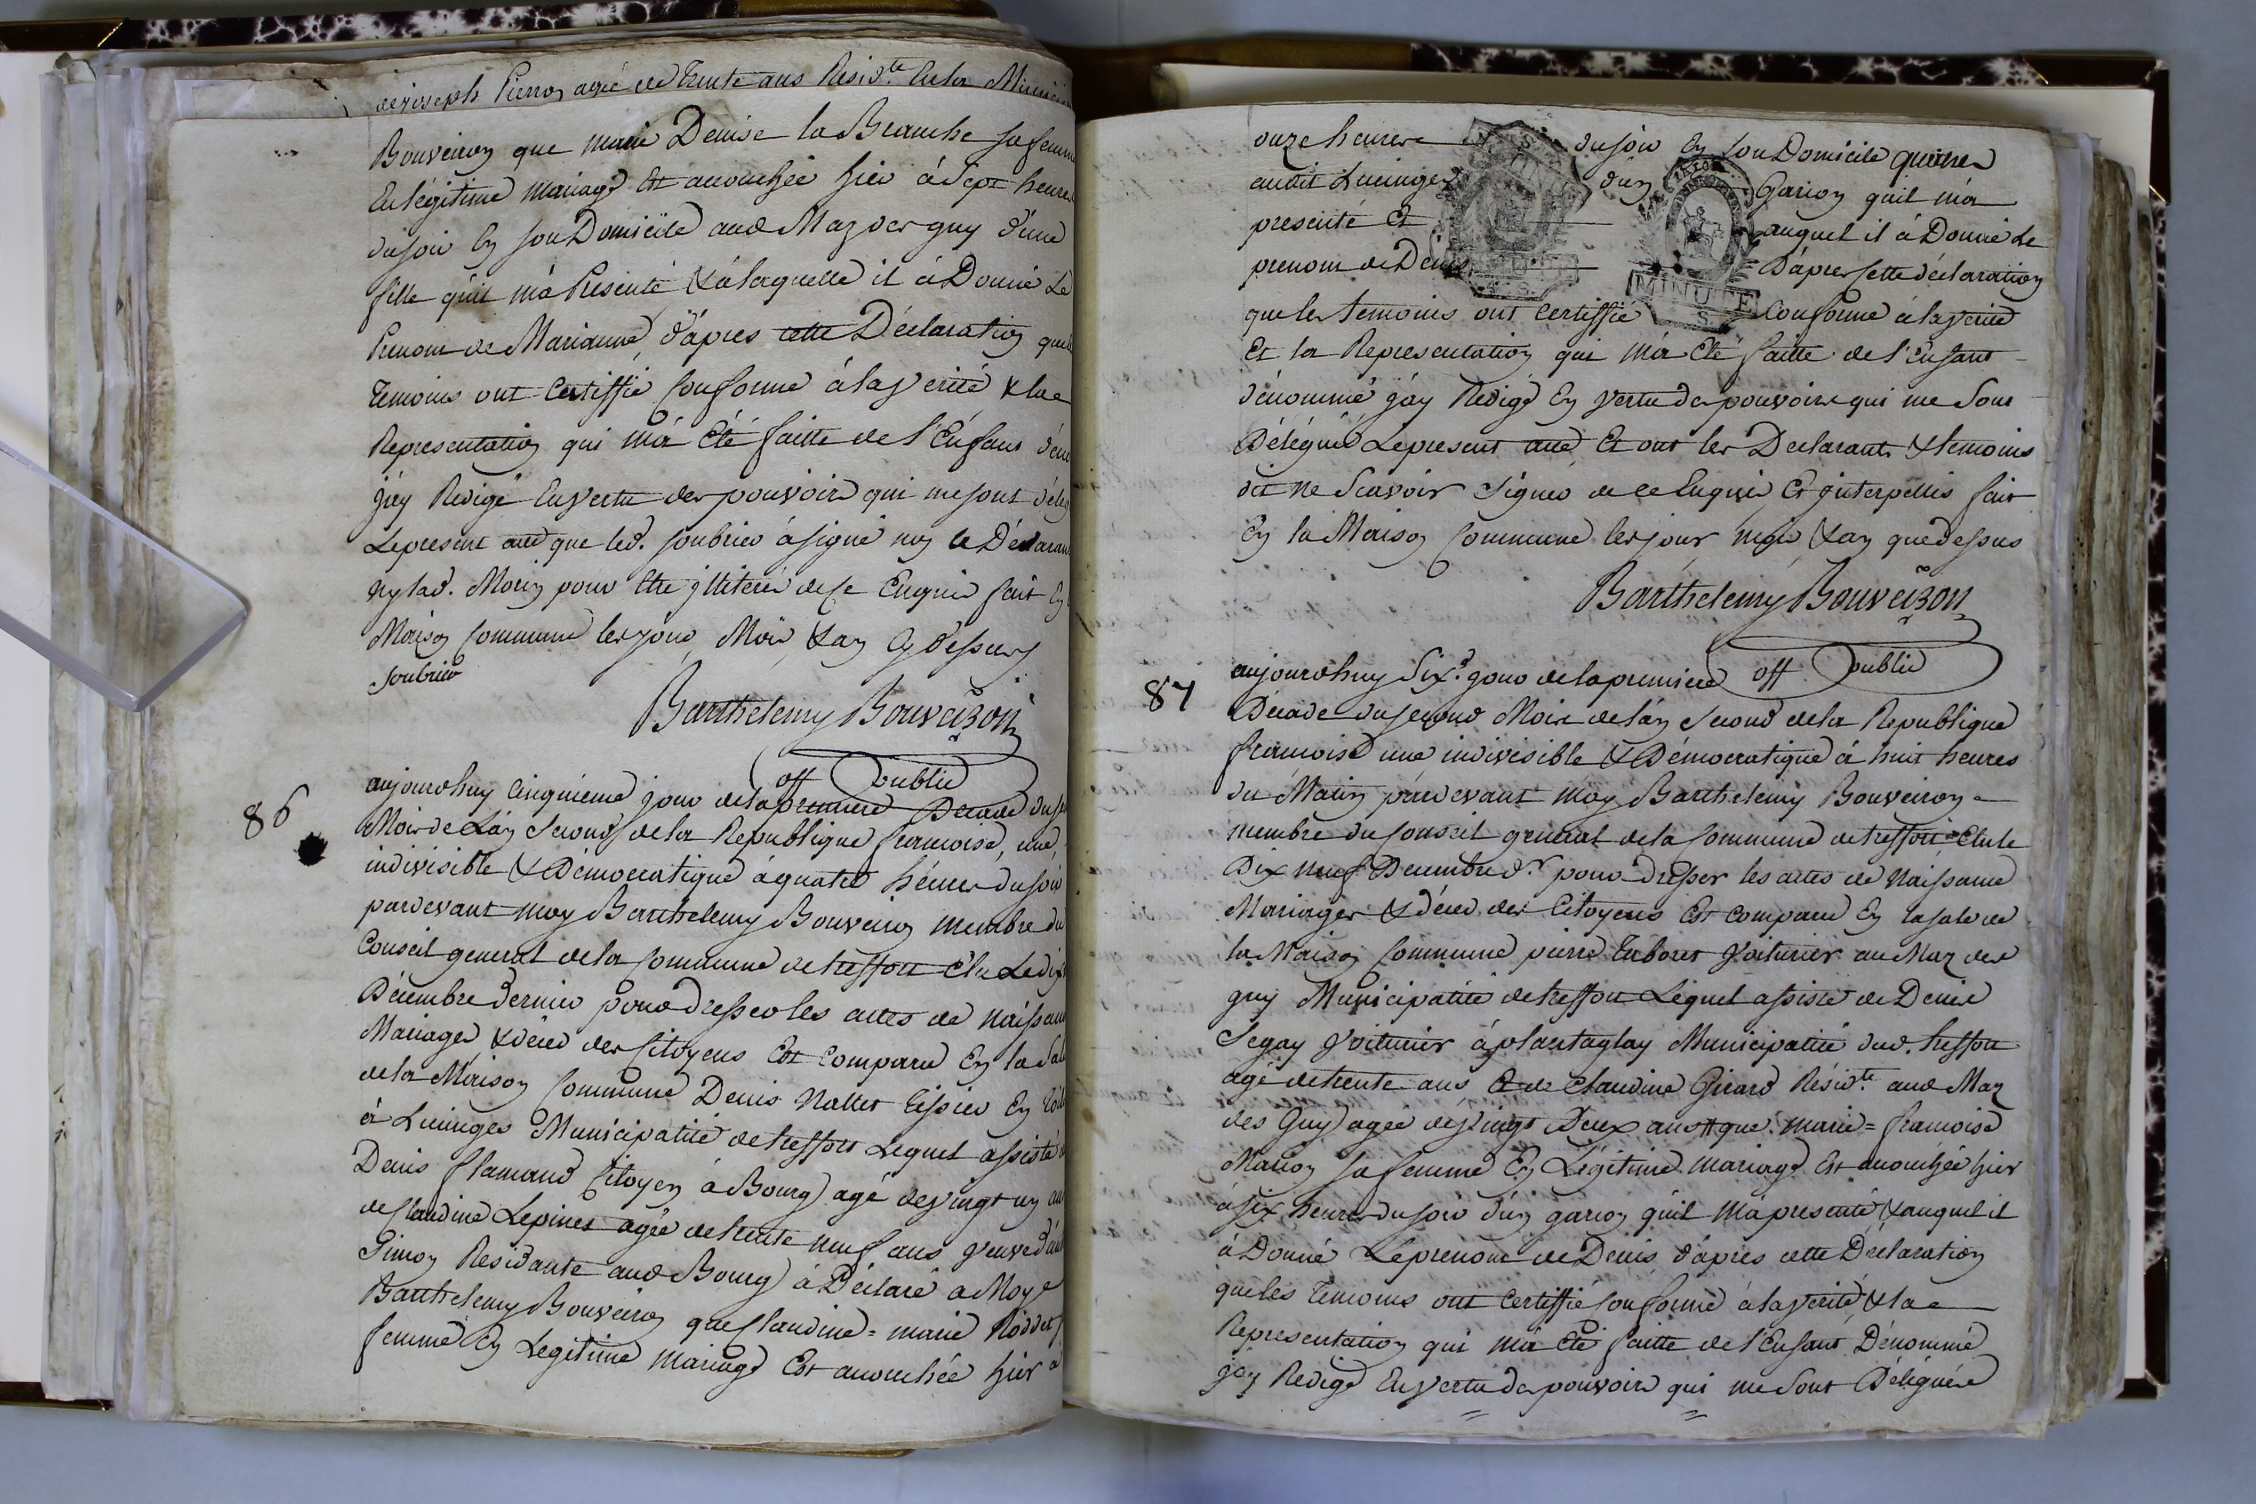 de joseph Pierron agée de trente ans Resid.te En la Municip
Bouveiron que marie Denise la Branche sa femme
En légitime mariage Est accouchée hier à Sept heures
du soir En son Domicile aud Maz des guy d'une
fille qu'il m'à Présenté & à laquelle il à Donné Le
Prenom de Marianne, d'après cette Déclaration que les
Temoins ont Certiffié Conforme à la verité & la
Representation qui m'à Eté faitte de l'Enfant dén
j'ay Redigé En vertu des pouvoirs qui me sont délég
Le present acte que led. soubrier à signé non le Déclarant
ny lad. Morin pour Etre jlliteré de ce Enquis fait En
Maison Commune les jour, Mois & an Cy dessus
soubrier
Barthelemy Bouveiron
off public
86
aujourdhuy Cinquieme jour de la premiere Décade du se
Mois de L'an Second de la Republique francoise, une,
indivisible & Démocratique à quatre heures du soir
pardevant moy Barthelemy Bouveiron membre du
Conseil general de la Commune de treffort Elu Le dix
Décembre dernier pour dresser les actes de Naissance
Mariages & décés des Citoyens Est Comparu En la Sale
de la Maison Commune Denis Nallet Tissier En toile
à Lucinges Municipalité de treffort Lequel assisté de
Denis flamand Citoyen à Bourg agé de vingt un ans
de Claudine Lepinet agée de trente neuf ans veuve d'
Simon Residante aud Bourg à Déclaré à Moy
Barthelemy Bouveiron que Claudine = marie Noddet
femme En Legitime mariage Est accouchée hier à
onze heures du soir En son Domicile
audit Lucinges d'un Garçon quil m'a
presenté Et auquel il à Donné Le
prenom de Denis D'apres cette déclaration
que les temoins ont certiffié Conforme à la verité
Et la Representation qui m'a Eté faitte de l'Enfant
dénommé j'ay Redigé En vertu des pouvoirs qui me Sont
Délégués Le present acte Et ont les Declarants & temoins
dit ne Scavoir Signer de ce Enquis Et jnterpellés fait
En la Maison Commune les jour mois & an que dessus
MINUTE
Barthelemy Bouveiron
off public
87
aujourdhuy Six.e jour de la premiere
Décade du second Mois de l'an Second de la Republique
francoise une indivisible & Démocratique à huit heures
du Matin pardevant moy Barthelemy Bouveiron
membre du Conseil general de la Commune de treffort Elu le
Dix neuf Décembre d.r pour dresser les actes de Naissance
Mariages & décés des Citoyens Est Comparu En la sale de
la Maison Commune pierre Voiturier au Maz des
guy Municipalité de treffort Lequel assisté de Denis
Segay Voiturier à plantaglay Municipalité dud. treffort
agé de trente ans & de Claudine Girard Résid.te aud Maz
des Guy agée de vingt Deux ans que marie = francoise
sa femme En Légitime mariage Est accouchée hier
à six heures du soir d'un garcon qu'il m'à presenté & auquel il
à Donné Le prenom de Denis d'après cette Déclaration
que les Temoins ont Certiffié Conforme à la verité & la
Representation qui m'à Eté faitte de l'Enfant Dénommé
j'ay Redigé En vertu des pouvoirs qui me Sont Délégués